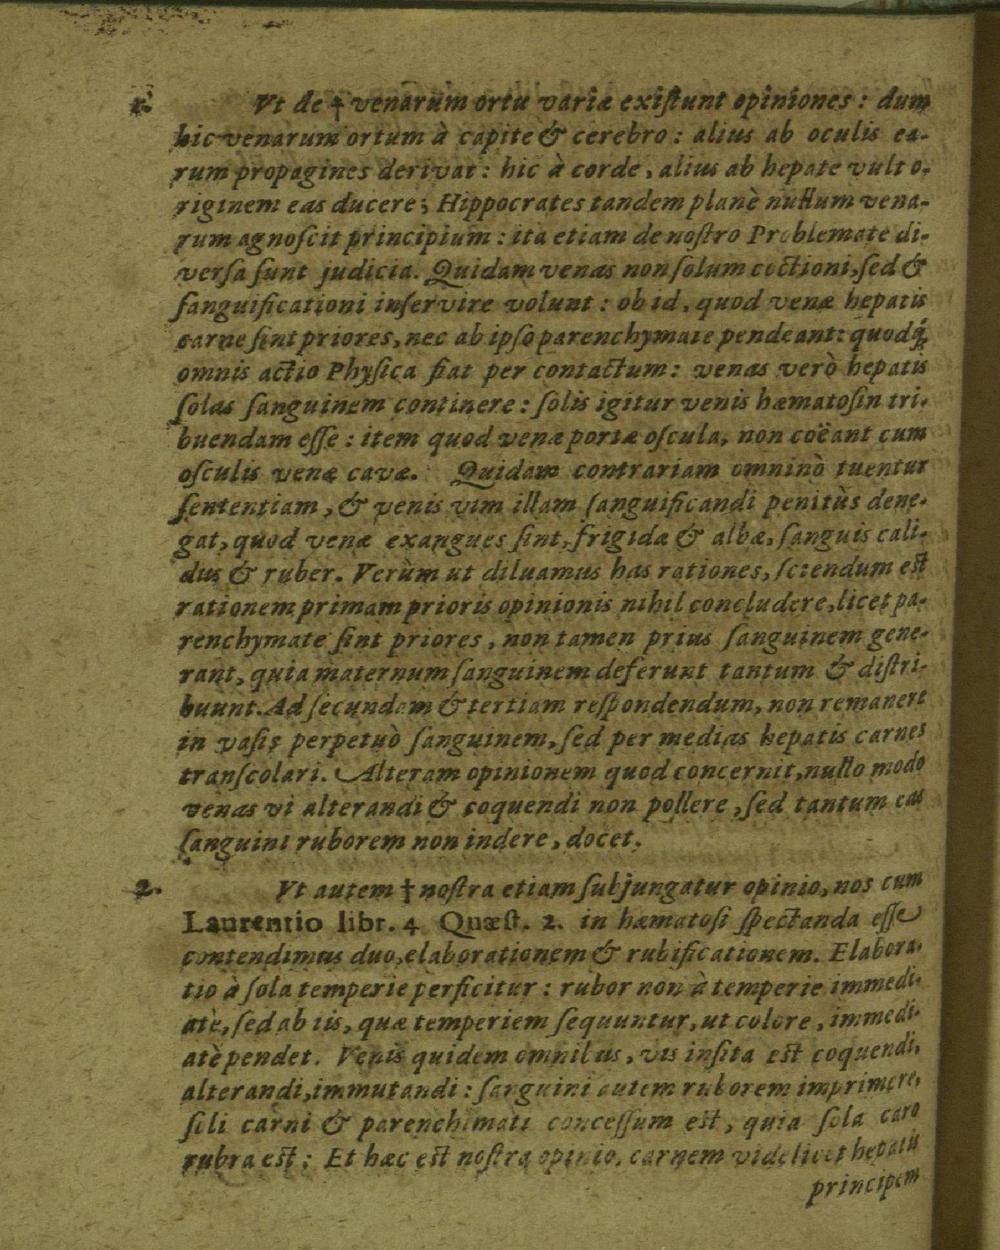 1. Ut de † venarum ortu variæ exiſtunt opiniones : dum
hic venarum ortum à capite & cerebro : alius ab oculis ea-
rum propagines derivat : hic à corde, alius ab hepate vult o-
riginem eas ducere; Hippocrates tandem planè nullum vena-
rum agnoſcit principium : ita etiam de noſtro Problemate di-
verſa ſunt judicia. Quidam venas non ſolum coctioni, ſed &
ſanguificationi inſervire volunt : ob id, quod venæ hepatis
carne ſint priores, nec ab ipſo parenchymate pendeant: quodq́;
omnis actio Phyſica fiat per contactum: venas verò hepatis
ſolas ſanguinem continere : ſolis igitur venis hæmatoſin tri-
buendam eſſe : item quod venæ portæ oſcula, non coëant cum
oſculis venæ cavæ. Quidam contrariam omninò tuentur
ſententiam, & venis vim illam ſanguificandi penitùs dene-
gat, quod venæ exangues ſint, frigidæ & albæ, ſanguis cali-
dus & ruber. Verùm ut diluamus has rationes, ſciendum eſt
rationem primam prioris opinionis nihil concludere, licet pa-
renchymate ſint priores, non tamen prius ſanguinem gene-
rant, quia maternum ſanguinem deferunt tantum & diſtri-
buunt. Ad ſecundam & tertiam reſpondendum, non remanere
in vaſis perpetuò ſanguinem, ſed per medias hepatis carnes
tranſcolari. Alteram opinionem quod concernit, nullo modo
venas vi alterandi & coquendi non pollere, ſed tantum eas
ſanguini ruborem non indere, docet.
2. Ut autem † noſtra etiam ſubjungatur opinio, nos cum
Laurentio libr. 4 Quæſt. 2. in hæmatoſi ſpectanda eſſe
contendimus duo, elaborationem & rubificationem. Elabora-
tio à ſola temperie perficitur : rubor non à temperie immedi-
atè, ſed ab iis, quæ temperiem ſequuntur, ut colore, immedi-
atè pendet. Venis quidem omnibus, vis inſita eſt coquendi,
alterandi, immutandi : ſanguini autem ruborem imprimere,
ſoli carni & parenchimati conceſſum eſt, quia ſola caro
rubra eſt; Et hæc eſt noſtra opinio, carnem videlicet hepatis
principem